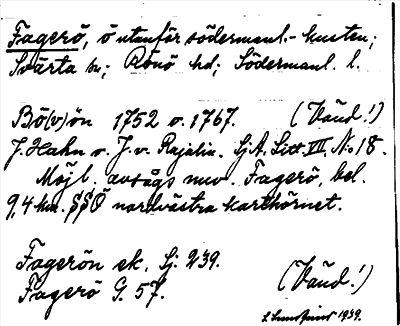 Fagerö, ö utanför södermanl.-kusten;
Svärta sn; Rönö hd; Södermanl. l.
Bö(v)ön 1752 o. 1767. (Vänd!)
J. Hahn o. J. v. Rajalin. Sj.A. Litt VII. No 18.
Möjl. avsågs nuv. Fagerö, bel.
9,4 km. SSÖ nordvästra karthörnet.
Fagerön ek. Sj. 239.
Fagerö G. 57. (Vänd!)
1939.